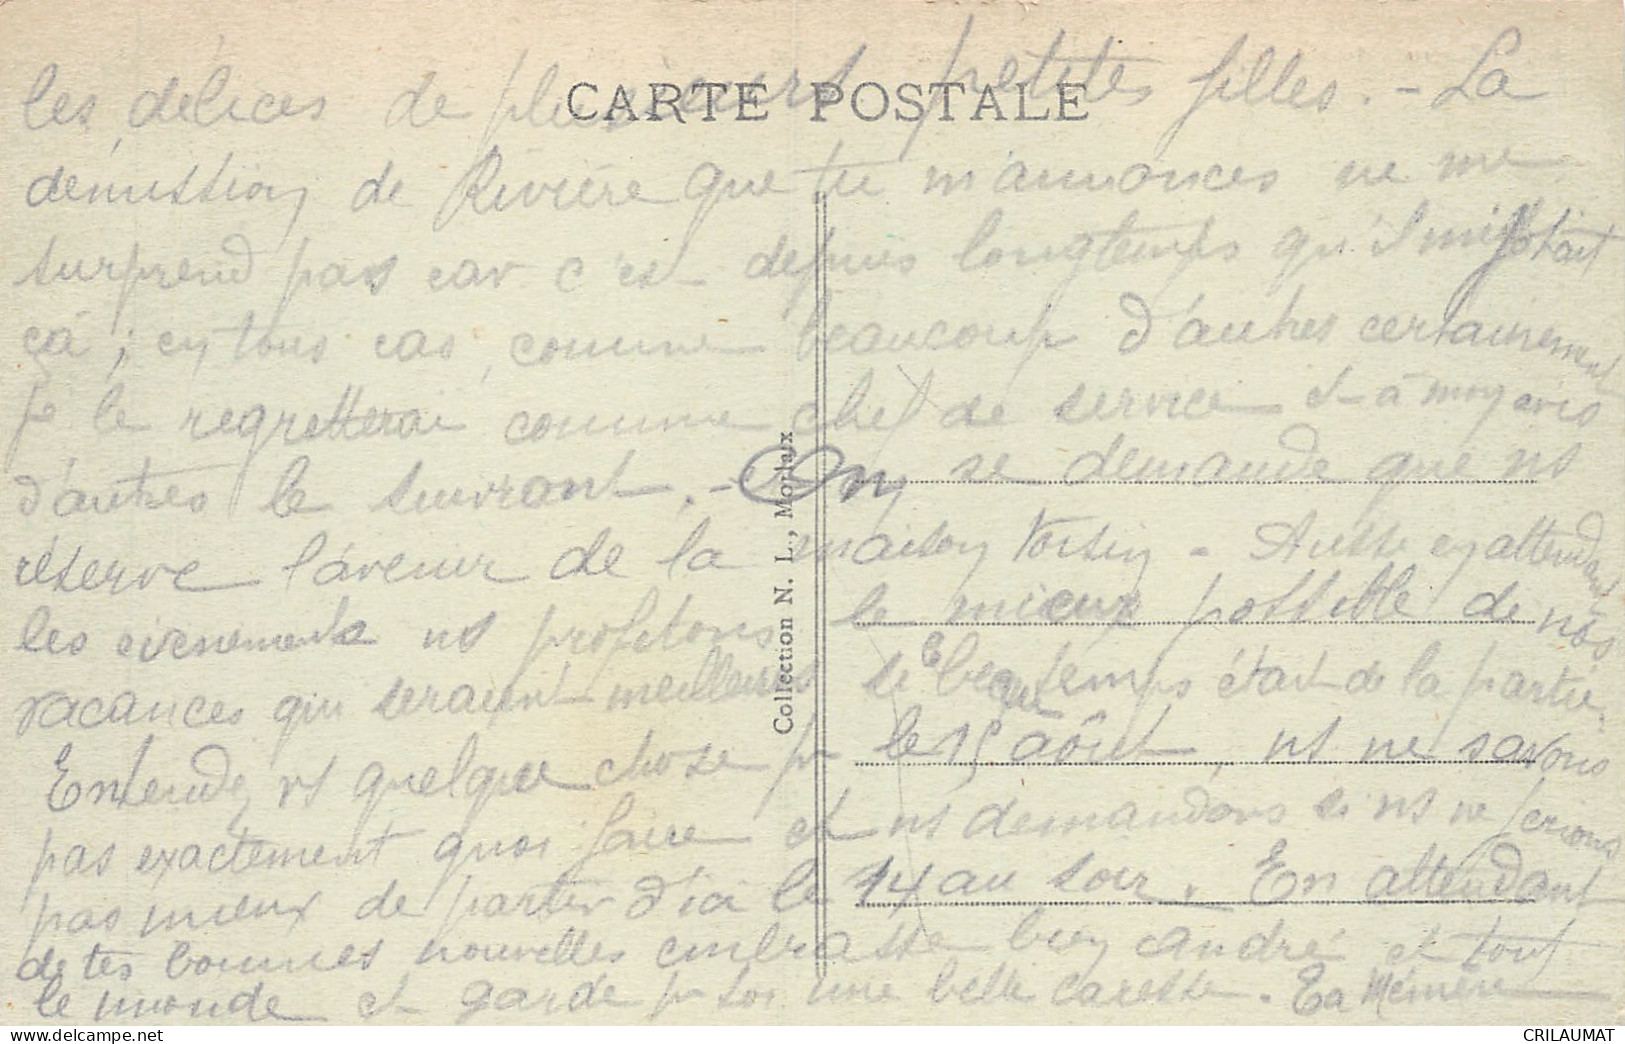 CARTE POSTALE
les délices de plusieurs petites filles. - La
démission de Rivière que tu m'annonces ne me
surprend pas car c'est depuis longtemps qu'il mijotait
ça ; en tous cas, comme beaucoup d'autres certainement
je le regretterai comme chef de service et à mon avis
d'autres le suivront. - On se demande que ns
réserve l'avenir de la maison Voisin - Aussi en attendant
les évènements ns profitons le mieux possible de nos
vacances qui seraient meilleures si le beau temps était de la partie.
Entendez vs quelque chose pr le 15 août, ns ne savons
pas exactement quoi faire et ns demandons si ns ne ferions
pas mieux de partir d'ici le 14 au soir. En attendant
de tes bonnes nouvelles embrasse bien André et tout
le monde et garde pr toi une belle caresse. Ta Mémère
Collection N. L., Morlaix
CRILAUMAT